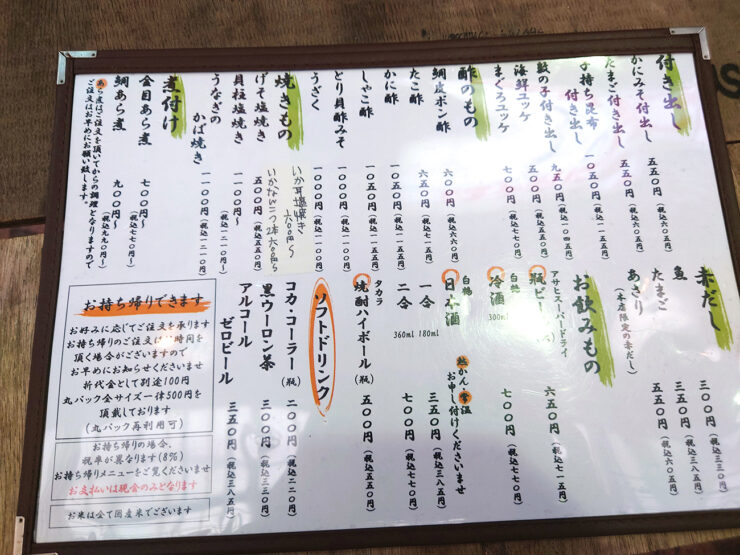 付き出し
かにみそ付き出し 五五〇円（税込六〇五円）
たまご付き出し 五五〇円（税込六〇五円）
子持ち昆布
付き出し 一〇五〇円（税込一一五五円）
数の子付き出し 九五〇円（税込一〇四五円）
海鮮ユッケ 七〇〇円（税込七七〇円）
まぐろユッケ 七〇〇円（税込七七〇円）
酢のもの
鯛皮ポン酢 六〇〇円（税込六六〇円）
たこ酢 六五〇円（税込七一五円）
かに酢 一〇五〇円（税込一一五五円）
しゃこ酢 一〇五〇円（税込一一五五円）
とり貝酢みそ 一〇〇〇円（税込一一〇〇円）
うざく 一〇〇〇円（税込一一〇〇円）
いか耳塩焼き 六〇〇円～
焼きもの
げそ塩焼き 五〇〇円（税込五五〇円）
貝柱塩焼き 一一〇〇円～（税込一二一〇円～）
うなぎの
かば焼き 一一〇〇円（税込一二一〇円）
煮付け
金目あら煮 七〇〇円～（税込七七〇円～）
鯛あら煮 九〇〇円～（税込九九〇円～）
あら煮はご注文を頂いてからの調理となりますので
ご注文はお早めにお願い致します。
赤だし
魚 三〇〇円（税込三三〇円）
たまご 三五〇円（税込三八五円）
あさり（本店限定の赤だし） 五五〇円（税込六〇五円）
お飲みもの
アサヒスーパードライ
瓶ビール 六五〇円（税込七一五円）
白鶴
冷酒 300ml 七〇〇円（税込七七〇円）
白鶴
日本酒 熱かん・常温
お申し付けくださいませ
一合 180ml 三五〇円（税込三八五円）
二合 360ml 七〇〇円（税込七七〇円）
タカラ
焼酎ハイボール（瓶） 五〇〇円（税込五五〇円）
ソフトドリンク
コカ・コーラー（瓶） 二〇〇円（税込二二〇円）
黒ウーロン茶 三〇〇円（税込三三〇円）
アルコール
ゼロビール 三五〇円（税込三八五円）
お持ち帰りできます
お好みに応じてご注文を承ります
お持ち帰りのご注文は時間を
頂く場合がございますので
お早めにお知らせくださいませ
折代金として別途100円
丸パック全サイズ一律500円を
頂戴しております
（丸パック再利用可）
お持ち帰りの場合、
税率が異なります(8%)
お持ち帰りメニューをご覧くださいませ
お支払いは現金のみとなります
お米は全て国産米でございます